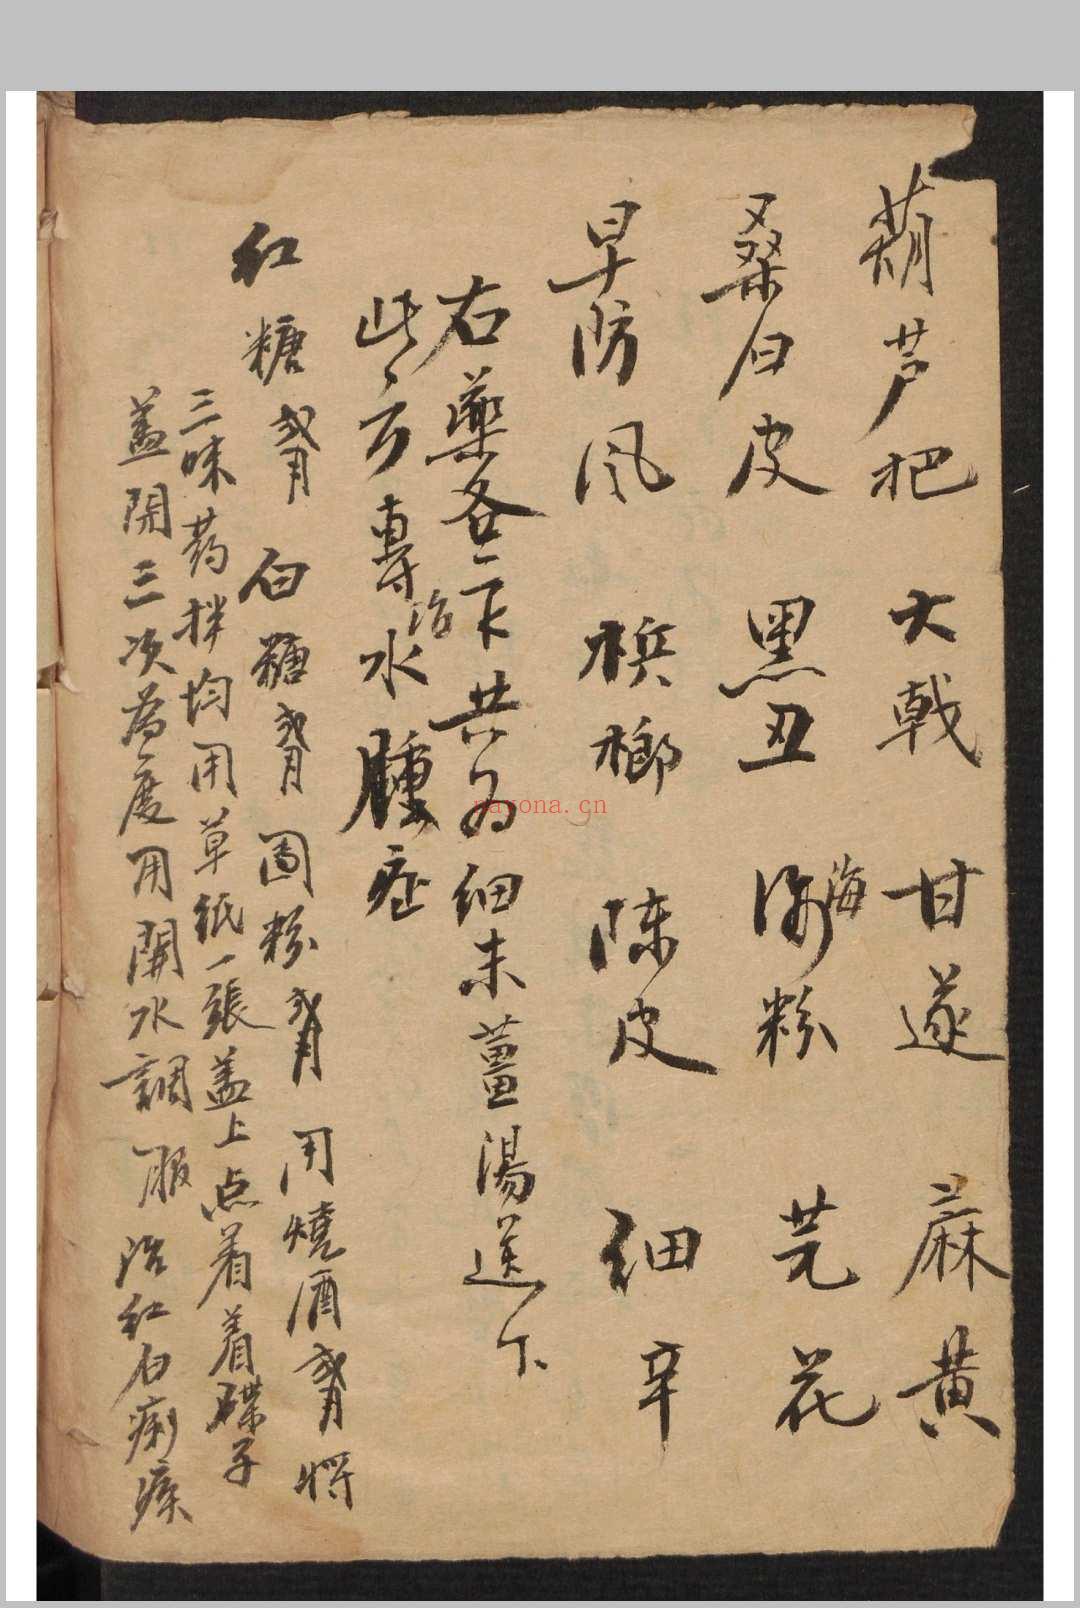 葫芦把 大戟 甘遂 蔴黄
桑白皮 黑丑 海粉 芫花
早防风 槟榔 陈皮 细辛
右藥各一下共为细末薑湯送下
此方專治水腫症
红糖 白糖 粉 用燒酒 将
三味药拌均用草纸一張盖上点着着碟子
盖開三次為度用開水調服治红白痢疾
nayona.cn